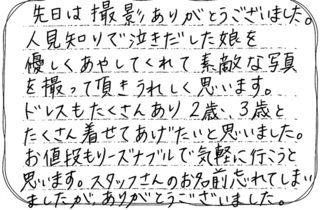 先日は撮影ありがとうございました。
人見知りで泣きだした娘を
優しくあやしてくれて素敵な写真
を撮って頂きうれしく思います。
ドレスもたくさんあり2歳、3歳と
たくさん着せてあげたいと思いました。
お値段もリーズナブルで気軽に行こうと
思います。スタッフさんのお名前忘れてしまい
ましたが、ありがとうございました。